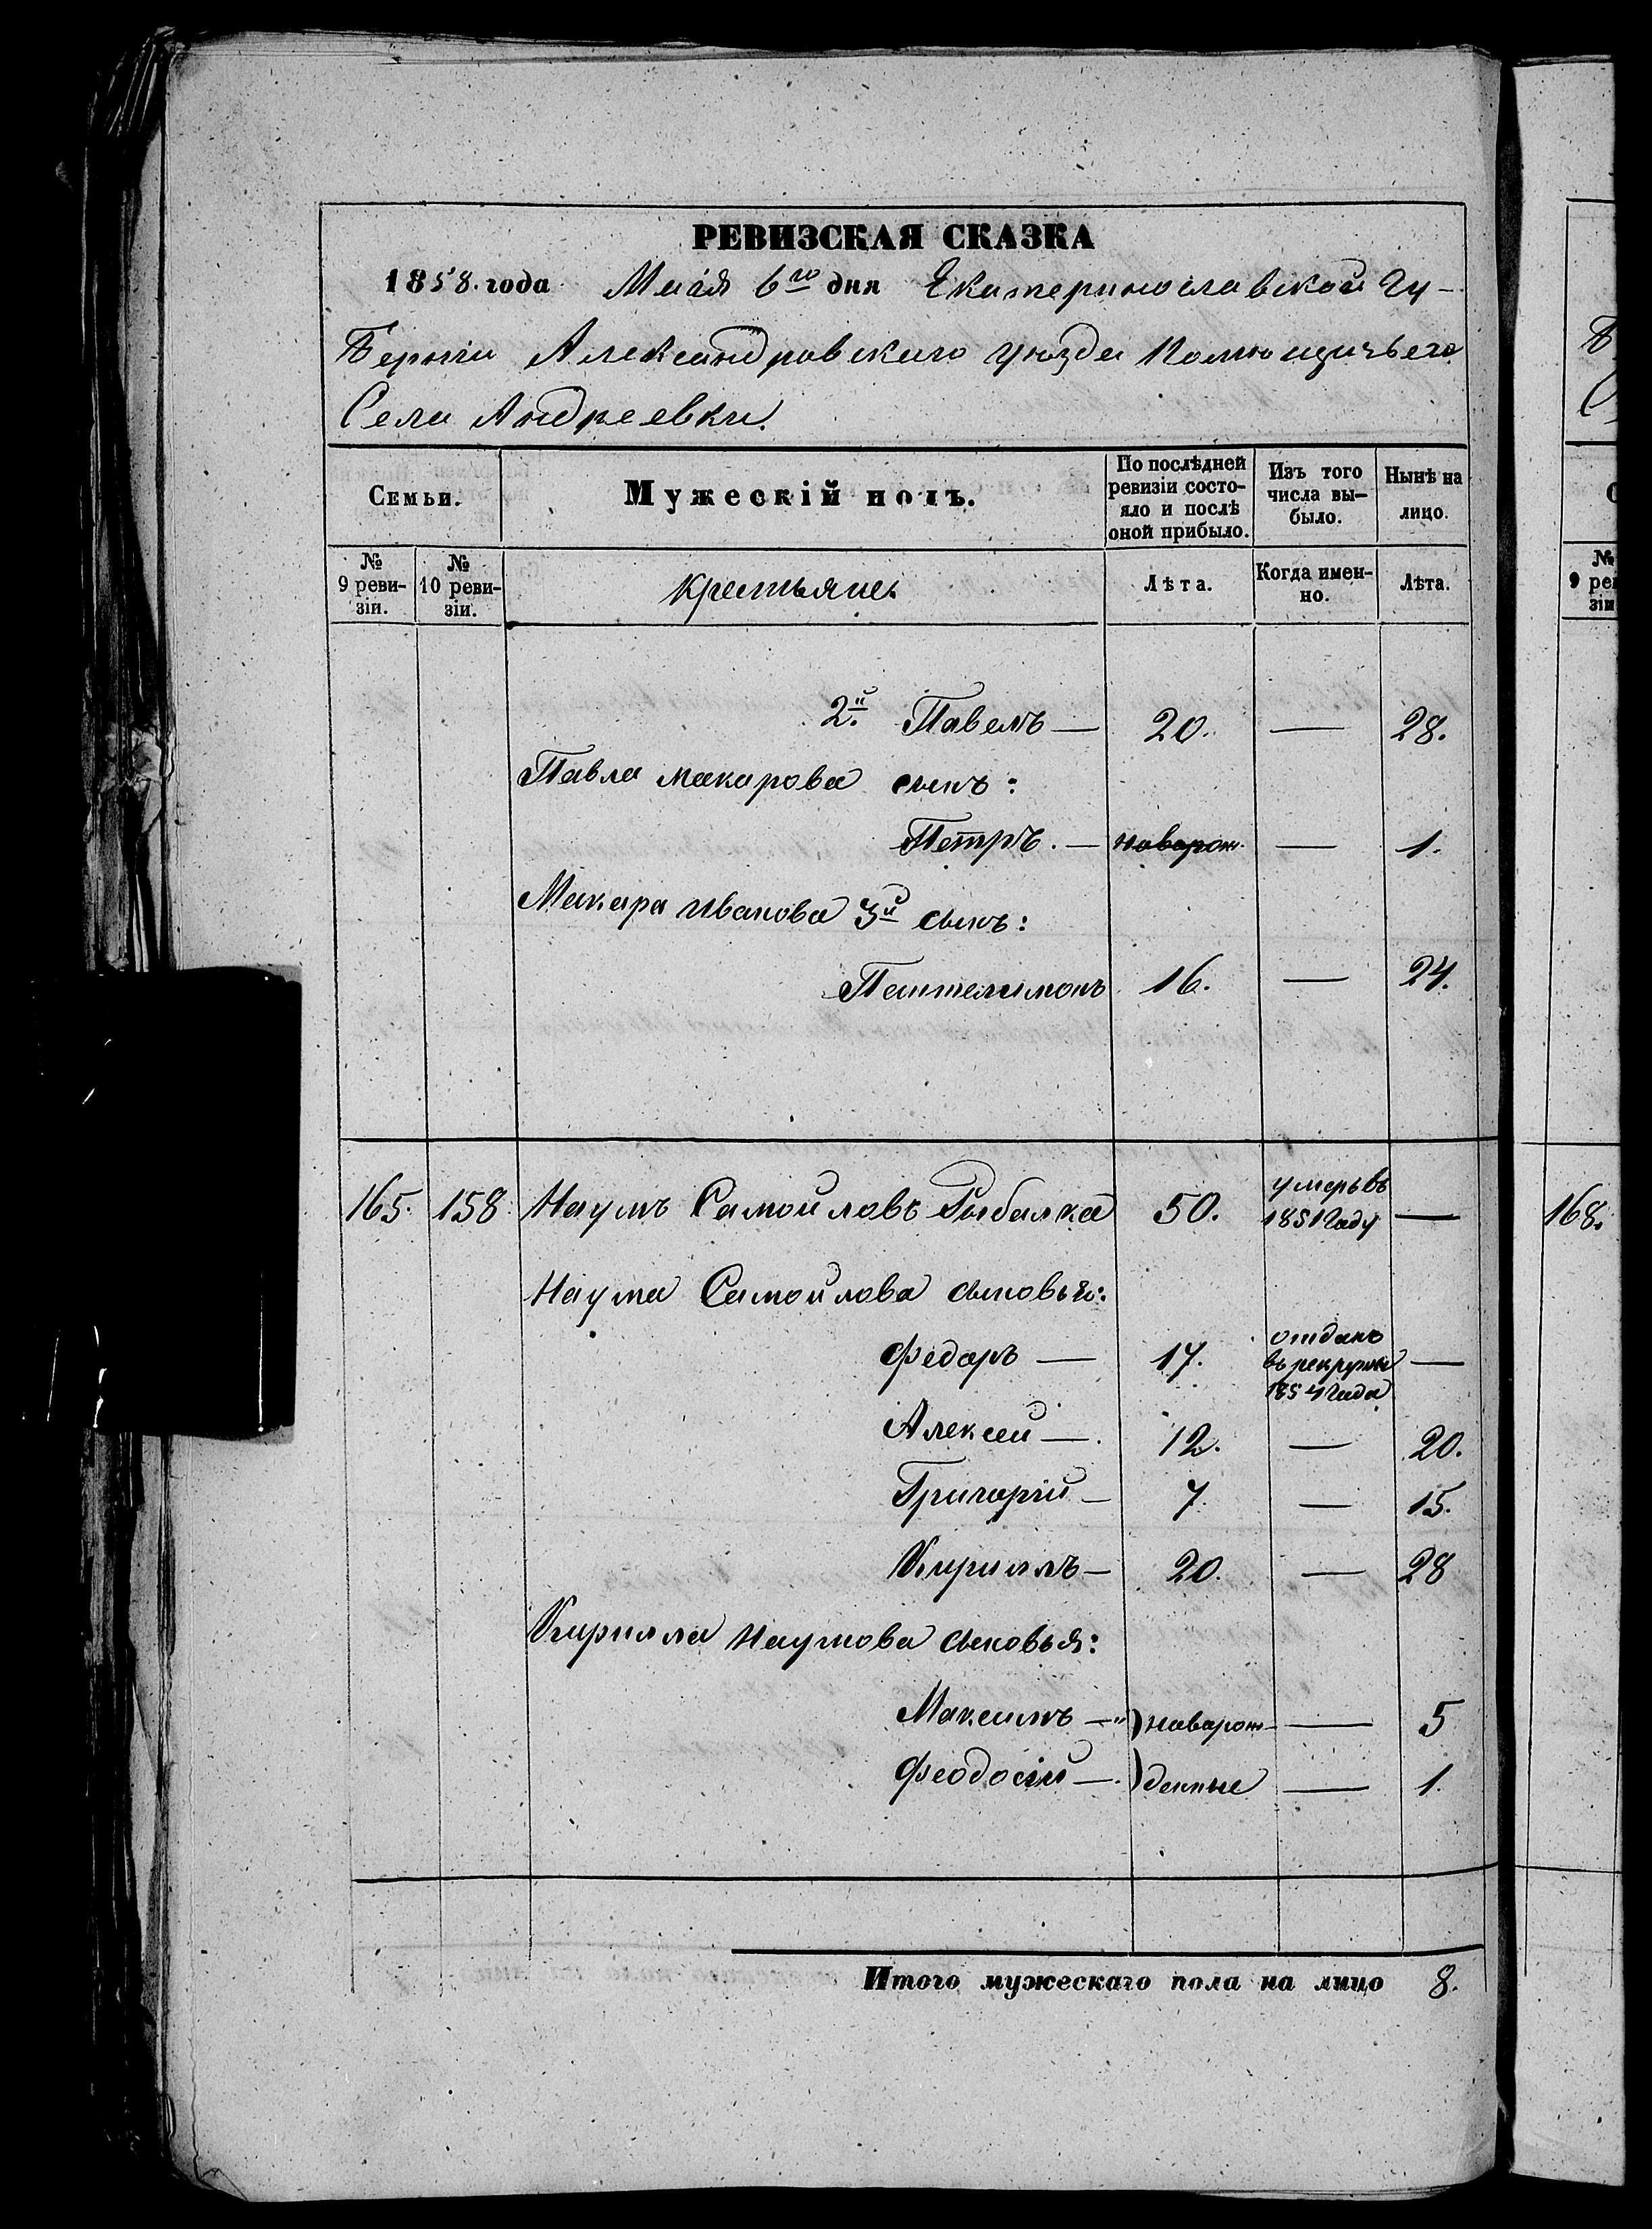 РЕВИЗСКАЯ СКАЗКА
1858. года Маія 6го дня Екатеринославской Гу-
берніи Александровскаго уѣзда Помѣщичьего
Села Андреевки.
Семьи. Мужескій полъ. По послѣдней ревизіи состо-яло и послѣ оной прибыло. Изъ того числа вы-было. Нынѣ на лицо.
№ 9 реви-зіи. № 10 реви-зіи. Крестьяне. Лѣта. Когда имен-но. Лѣта.
2й Павелъ — 20. — 28.
Павла Макарова сынъ:
Петръ. — новорож. — 1.
Макара Иванова 3й сынъ:
Пантелимонъ 16. — 24.
165. 158. Наумъ Самойловъ Рыбалка 50. умеръ въ 1851 Году —
168.
Наума Самойлова сыновья:
Федоръ — 17. отданъ въ рекруты 1854 Года —
Алексей — 12. — 20.
Григорій — 7. — 15.
Кириллъ — 20. — 28
Кирилла Наумова сыновья:
Максимъ — " ) новорож- — 5
Феодосій — ) денные — 1.
Итого мужескаго пола на лицо 8.